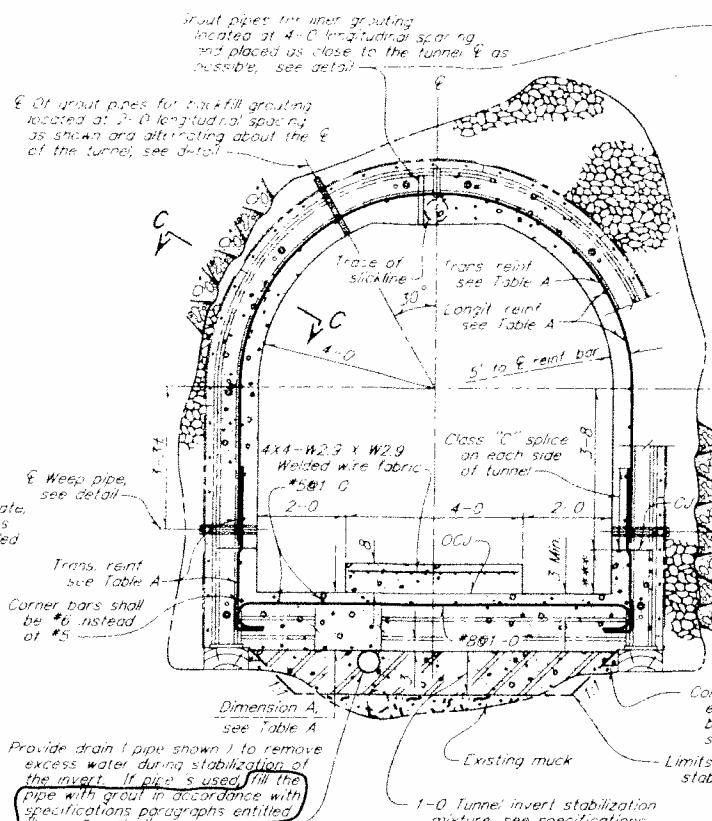 Grout pipes for liner grouting
located at 4-0 longitudinal spacing
and placed as close to the tunnel ℄ as
possible, see detail
℄
℄ Of grout pipes for backfill grouting
located at 2-0 longitudinal spacing
as shown and alternating about the ℄
of the tunnel, see detail
C
Trace of
slickline
30°
Trans. reint
see Table A
Longit reint
see Table A
C
4-0
5" to ℄ reint bar
4x4-W2.9 x W2.9
Welded wire fabric
#5@1-0
Class "C" splice
on each side
of tunnel
3-8
℄ Weep pipe,
see detail
2-0
4-0
2-0
CJ
8
OCJ
3 Min.
***
Trans. reint
see Table A
Corner bars shall
be #6 instead
of #5
#8@1-0
3
1:1
Dimension A,
see Table A
Existing muck
Limits
Provide drain (pipe shown) to remove
excess water during stabilization of
the invert. If pipe is used, fill the
pipe with grout in accordance with
specifications paragraphs entitled
1-0 Tunnel invert stabilization
mixture, see specifications